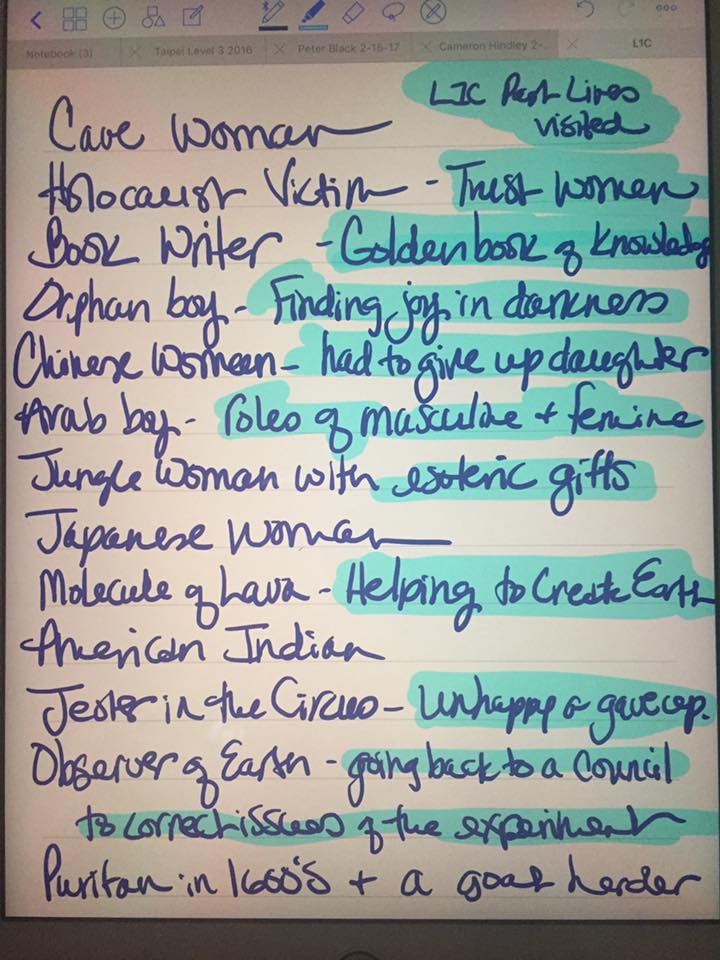 Notebook (3)
Taipei Level 3 2016
Peter Black 2-16-17
Cameron Hindley 2-
L1C
L1C Past Lives
visited
Cave Woman
Holocaust Victim - Trust women
Book Writer - Golden book of knowledge
Orphan boy - Finding joy in darkness
Chinese Woman - had to give up daughter
Arab boy - roles of masculine + femine
Jungle Woman with esoteric gifts
Japanese Woman
Molecule of Lava - Helping to Create Earth
American Indian
Jester in the Circus - Unhappy & gave up.
Observer of Earth - going back to a Council
to correct issues of the experiment
Puritan in 1600's + a goat herder